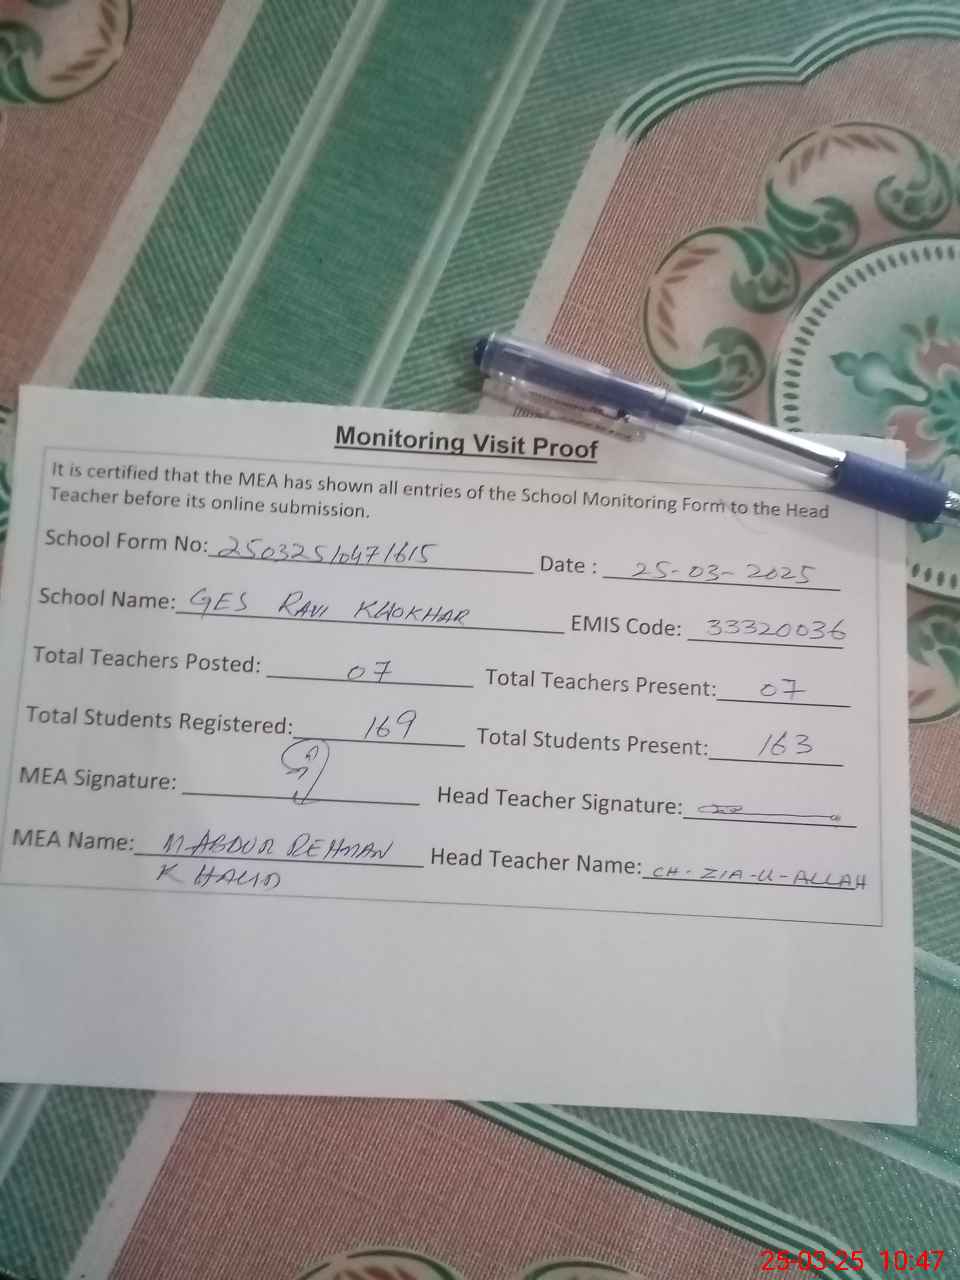 Monitoring Visit Proof
It is certified that the MEA has shown all entries of the School Monitoring Form to the Head
Teacher before its online submission.
School Form No: 25032510471615 Date : 25-03-2025
School Name: GES RAVI KHOKHAR EMIS Code: 33320036
Total Teachers Posted: 07 Total Teachers Present: 07
Total Students Registered: 169 Total Students Present: 163
MEA Signature: Head Teacher Signature:
MEA Name: M ABDUR REHMAN Head Teacher Name: CH. ZIA-U-ALLAH
KHALID
25-03-25 10:47